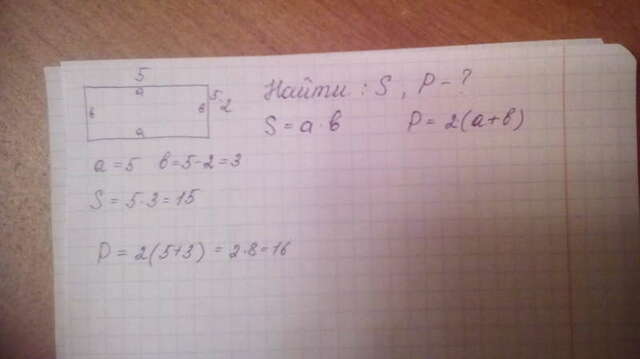 5
a
в
в
5-2
a
Найти: S, P-?
S = a·в
P = 2(a+в)
a = 5 в=5-2=3
S = 5·3=15
P = 2(5+3) = 2·8=16